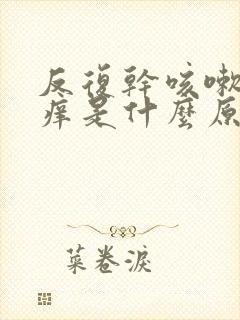 反復幹咳嗽
痒是什麼原
菜卷淚